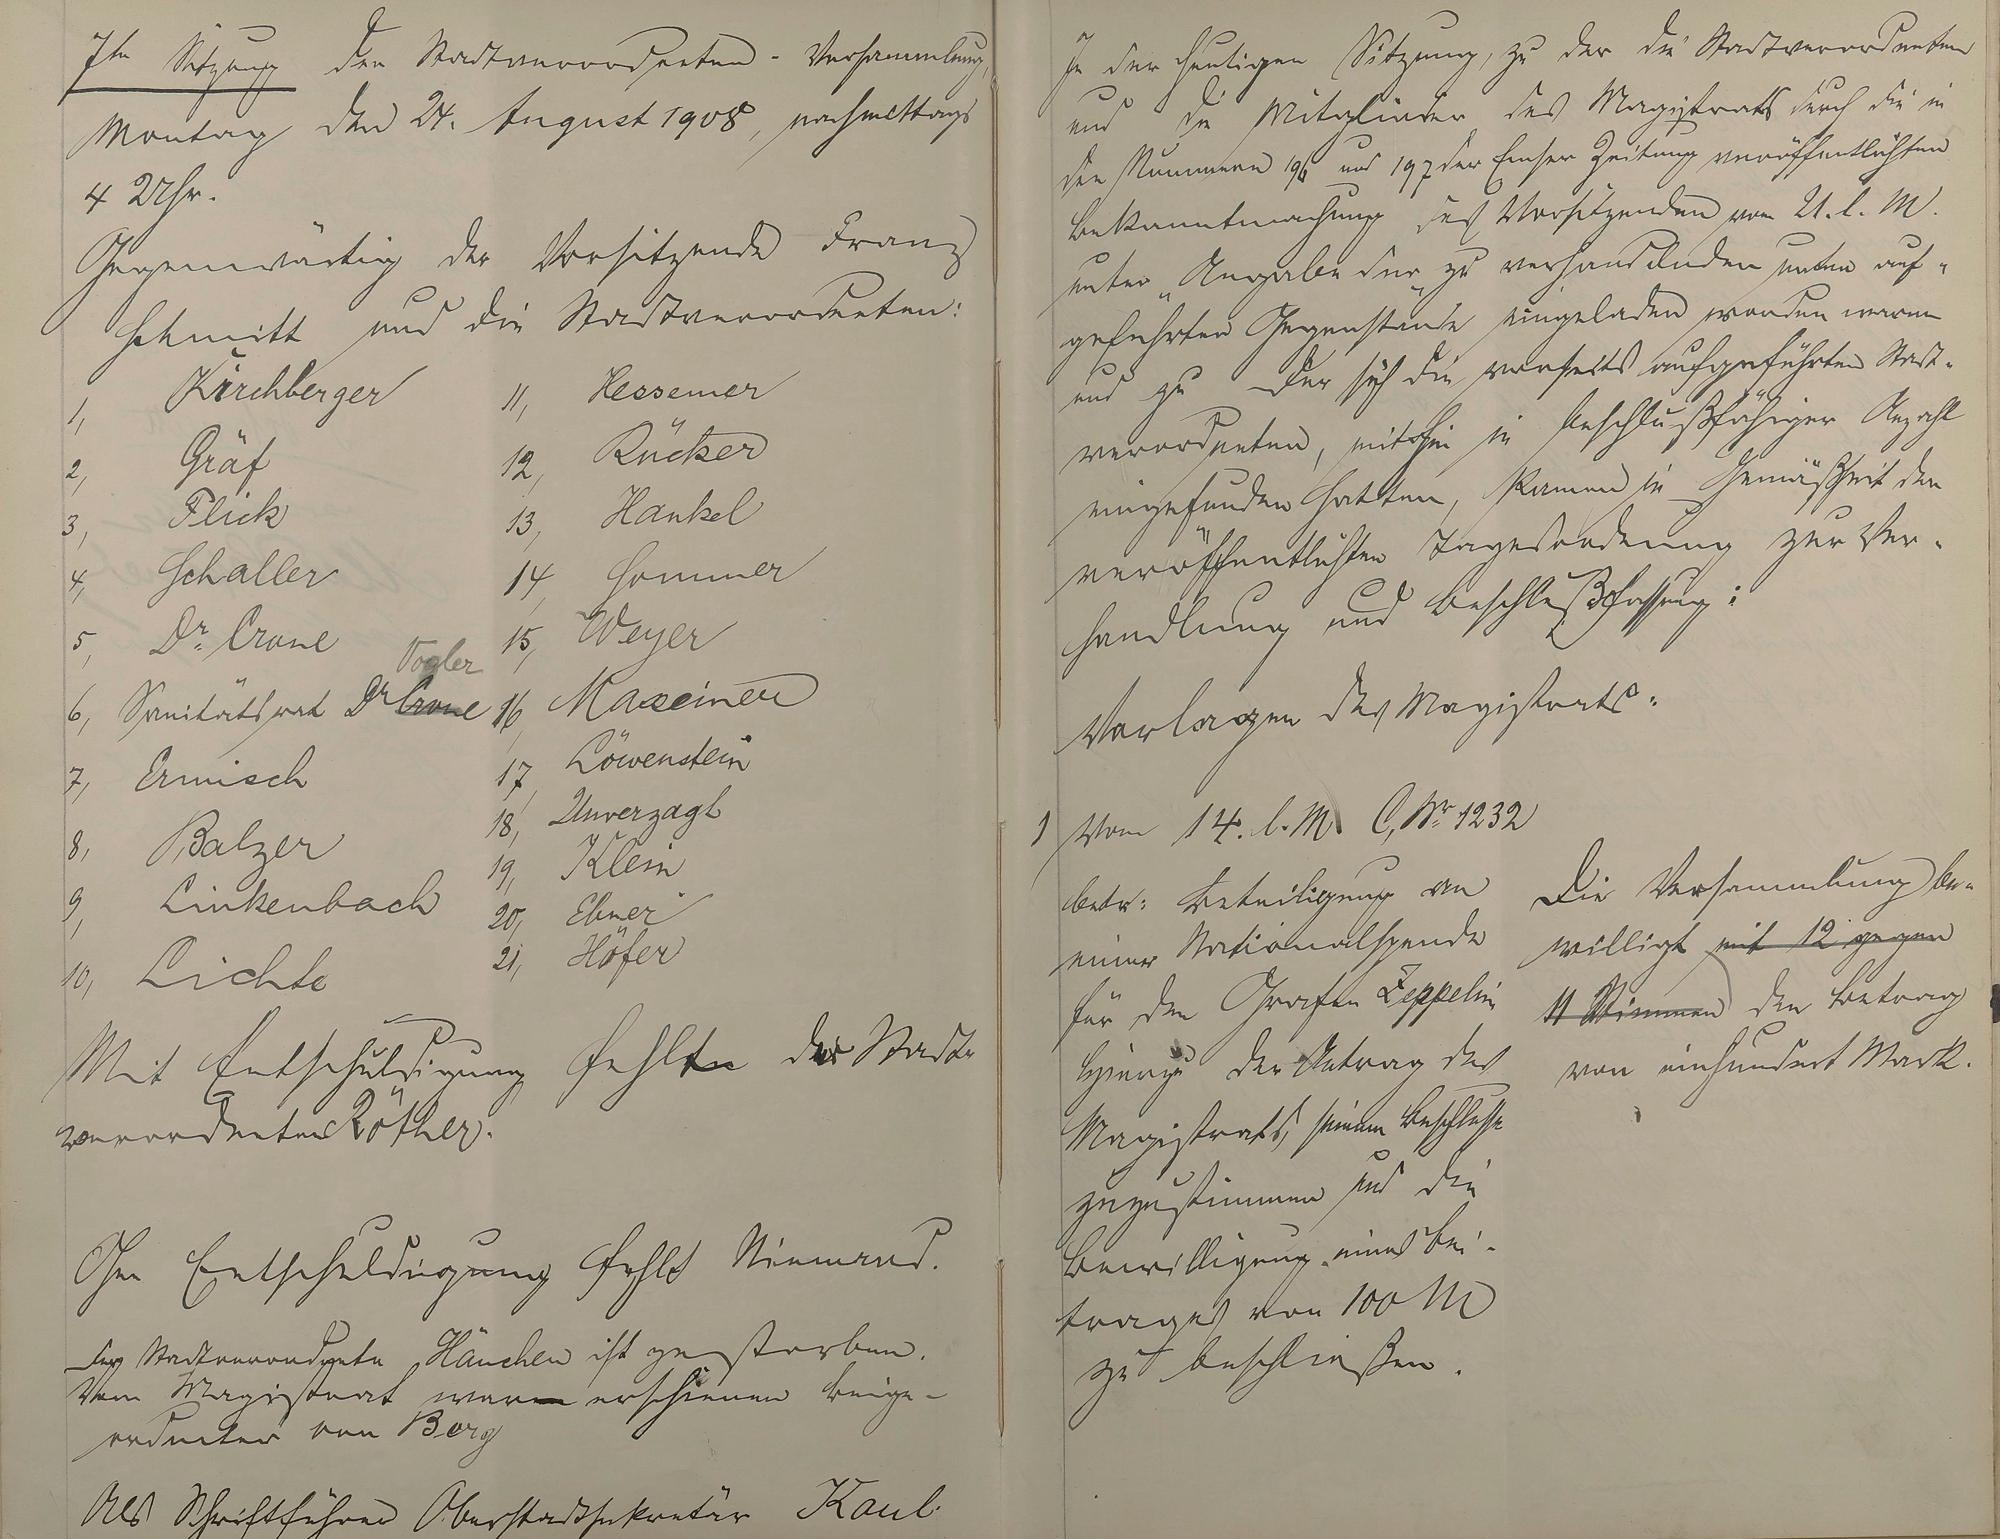 7te Sitzung der Stadtverordneten-Versammlung,
Montag den 24. August 1908, nachmittags
4 Uhr.
Gegenwärtig der Vorsitzende Franz
Schmitt und die Stadtverordneten:
1, Kirchberger
2, Gräf
3, Flick
4, Schaller
5, Dr. Crone
Vogler
6, Sanitätsrat Dr Crone
7, Ermisch
8, Balzer
9, Linkenbach
10, Lichte
11, Hessemer
12, Rücker
13, Hankel
14, Sommer
15, Weyer
16, Maxeiner
17, Löwenstein
18, Unverzagt
19, Klein
20, Ebner
21, Höfer
Mit Entschuldigung fehlte der Stadt-
verordneter Röther.
Ohne Entschuldigung fehlt Niemand.
Der Stadtverordnete Hänchen ist gestorben.
Vom Magistrat waren erschienen Beige-
ordneter von Berg
Als Schriftführer Oberstadtsekretär Kaul.
In der heutigen Sitzung, zu der die Stadtverordneten
und die Mitglieder des Magistrats durch die in
den Nummern 196 und 197 der Emser Zeitung veröffentlichten
Bekanntmachung des Vorsitzenden vom 21. l. M.
unter Angabe der zu verhandelnden unten auf-
geführten Gegenstände eingeladen worden waren
und zu der sich die vorseits aufgeführten Stadt-
verordneten, mithin in beschlußfähiger Anzahl
eingefunden hatten, kamen in Gemäßheit der
veröffentlichten Tagesordnung zur Ver-
handlung und Beschlußfassung:
Vorlagen des Magistrats:
1 Vom 14. l. M. C. Nr. 1232
betr: Beteiligung an
einer Nationalspende
für den Grafen Zeppelin
hierzu der Antrag des
Magistrats, seinem Beschlusse
zuzustimmen und die
Bewilligung eines Bei-
trages von 100 M
zu beschließen.
Die Versammlung be-
willigt mit 12 gegen
11 Stimmen den Betrag
von einhundert Mark.